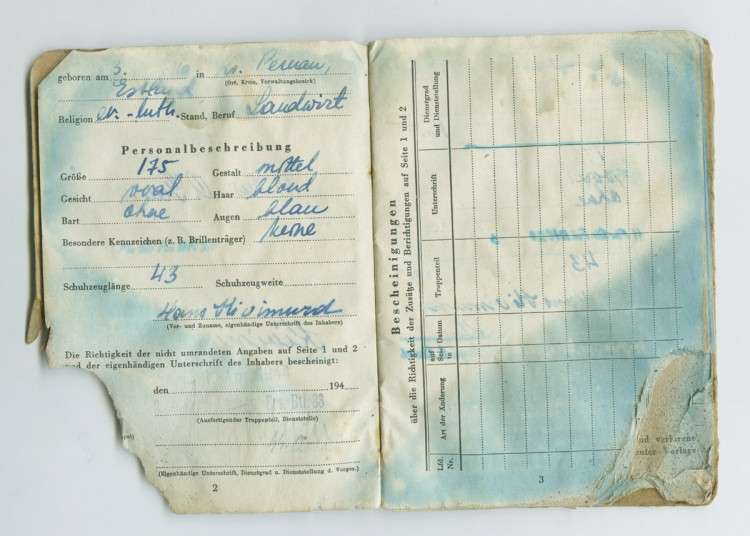 geboren am 3. in Pernau,
(Ort, Kreis, Verwaltungsbezirk)
Religion ev.-luth. Stand, Beruf Landwirt
Personalbeschreibung
Größe 175 Gestalt mittel
Gesicht oval Haar blond
Bart ohne Augen blau
Besondere Kennzeichen (z. B. Brillenträger) keine
Schuhzeuglänge 43 Schuhzeugweite
Hans
(Vor- und Zuname, eigenhändige Unterschrift des Inhabers)
Die Richtigkeit der nicht umrandeten Angaben auf Seite 1 und 2
und der eigenhändigen Unterschrift des Inhabers bescheinigt:
den 194
(Ausfertigender Truppenteil, Dienststelle)
(Eigenhändige Unterschrift, Dienstgrad u. Dienststellung d. Vorges.)
2
Bescheinigungen
über die Richtigkeit der Zusätze und Berichtigungen auf Seite 1 und 2
Lfd. Nr.
Art der Änderung
auf Seite
Datum
Truppenteil
Unterschrift
Dienstgrad
und Dienststellung
43
nd verlorene
enter Vorlage
3